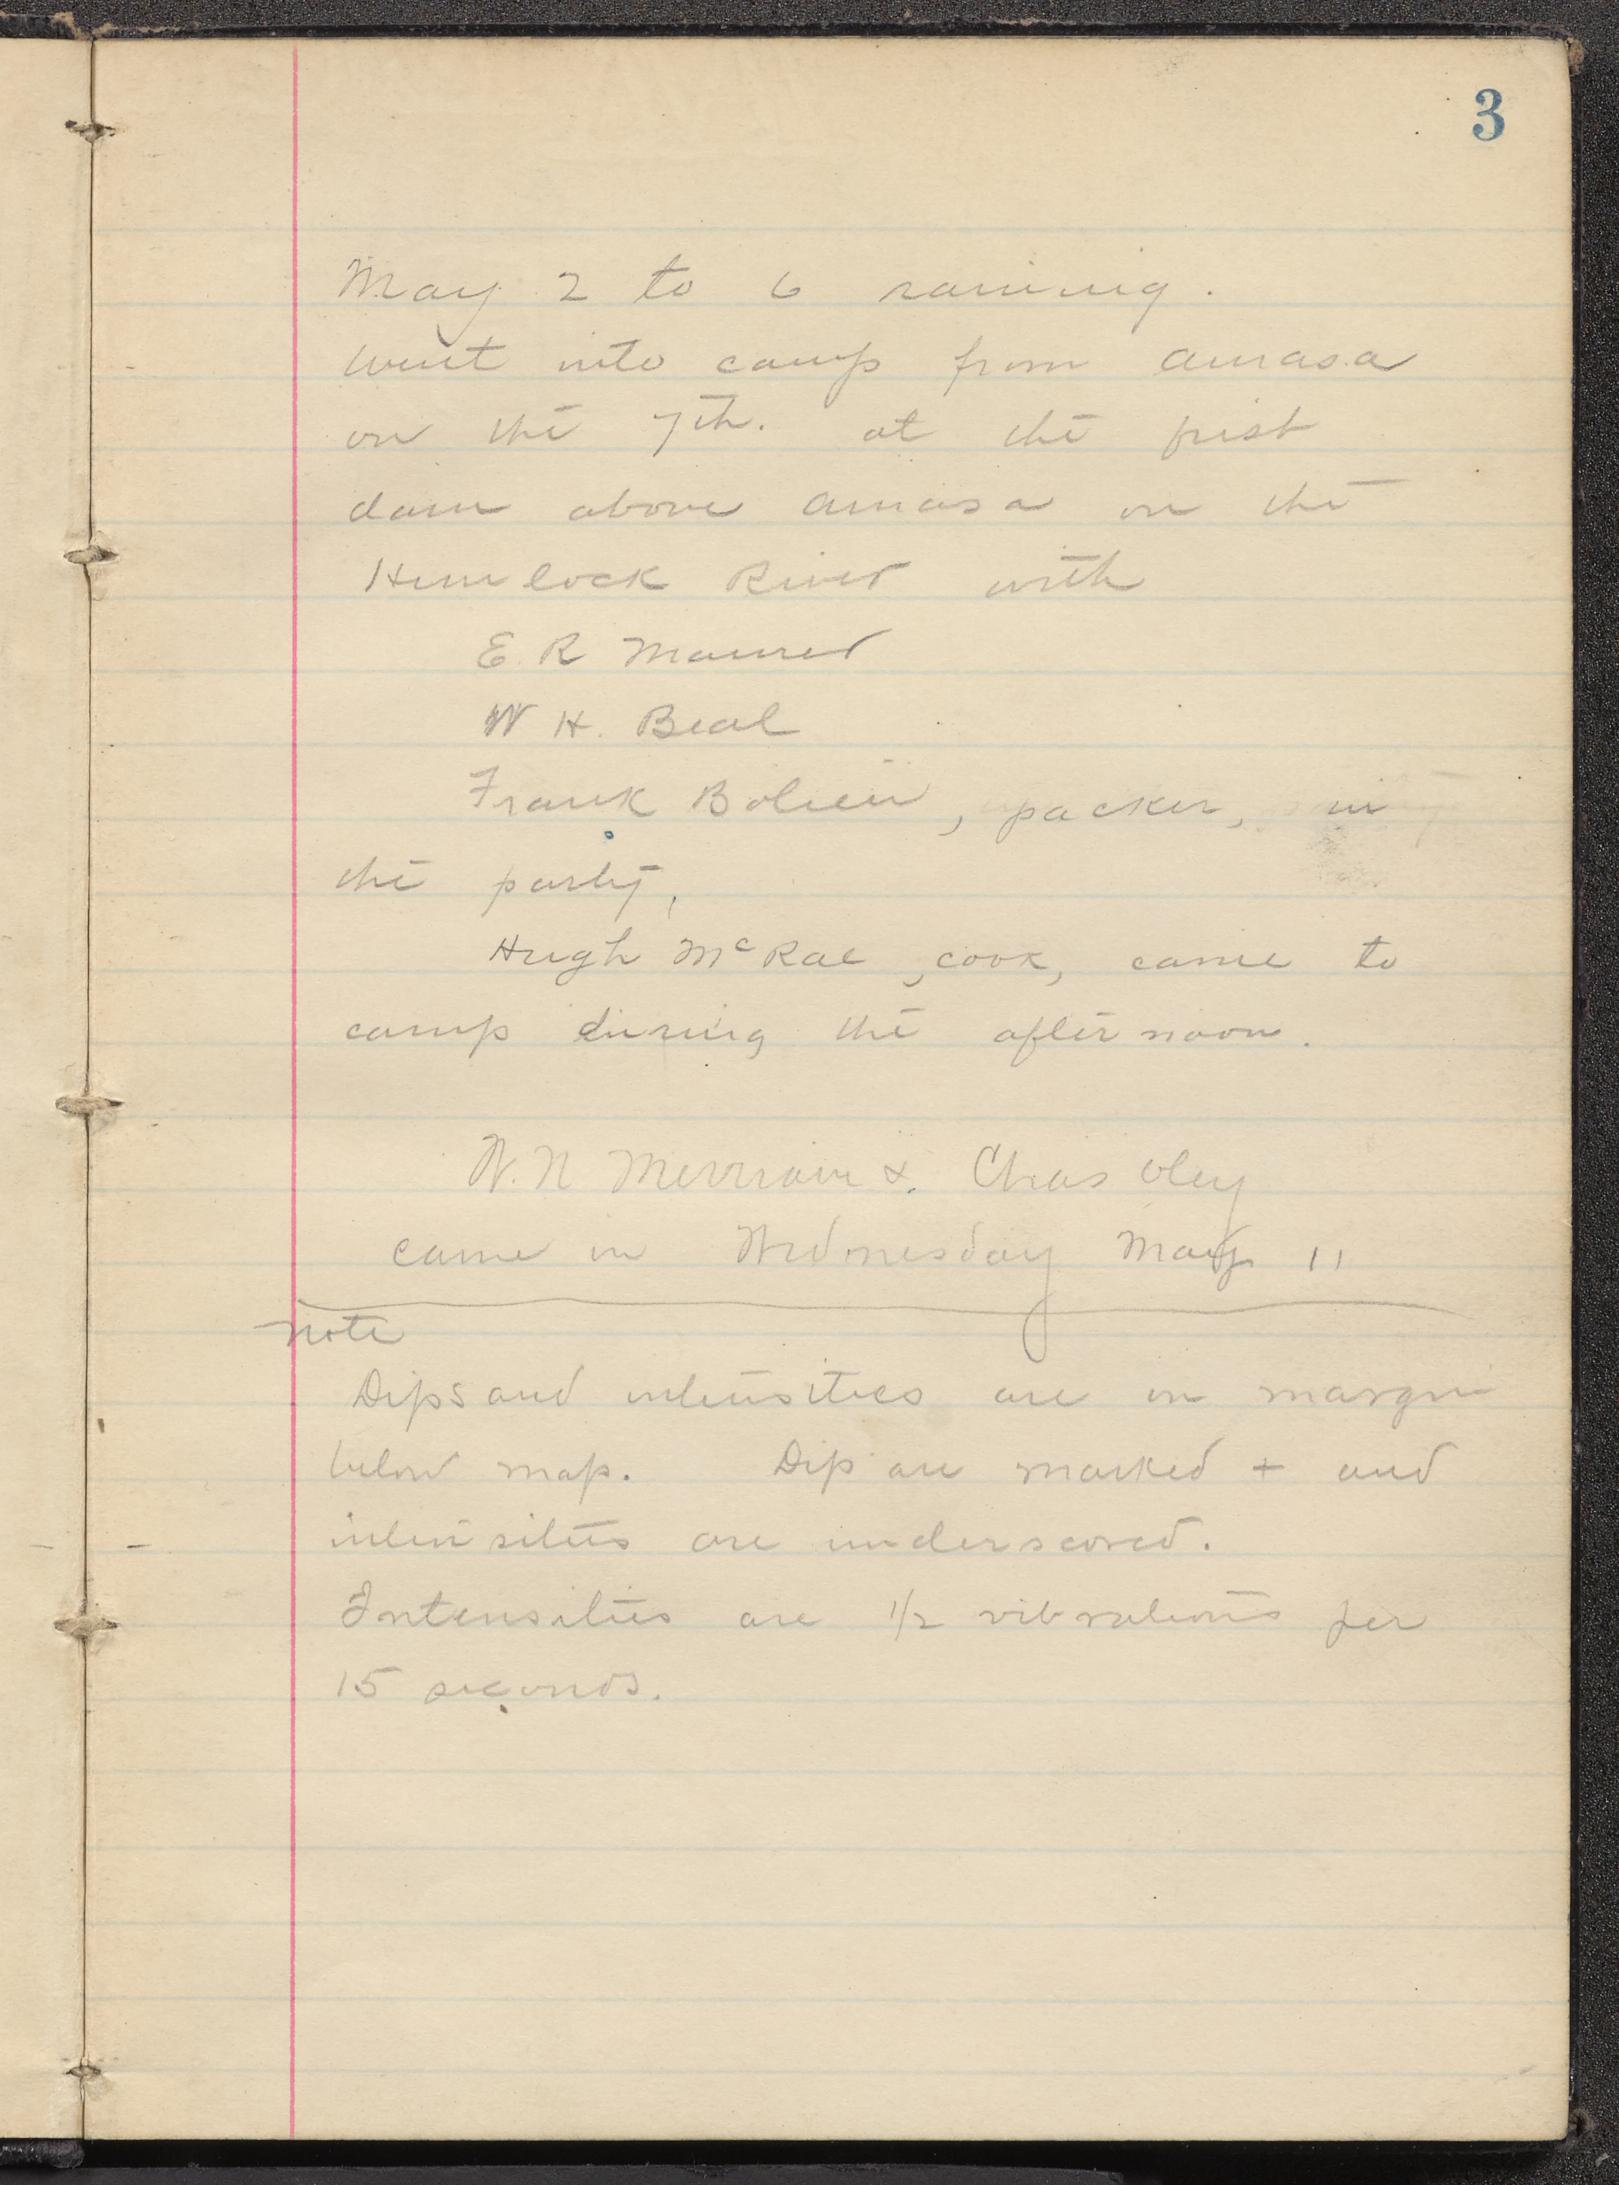 3
May 2 to 6 raining.
Went into camp from Amasa
on the 7th. at the first
dam above Amasa on the
Hemlock River with
E. R Maurer
W H. Beal
Frank , packer, in
the party,
Hugh McRae, cook, came to
camp during the afternoon.
W. N Merriam & Chas Oley
came in Wednesday May 11
Note
Dips and intensities are in margin
below map. Dip are marked + and
intensities are underscored.
Intensities are 1/2 vibrations per
15 seconds.